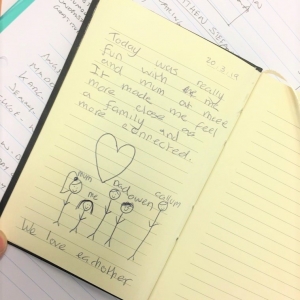 20.3.19
Today was really
fun with me
and mum at more
It made me feel
more close as
a family and
more connected.
mum
me
Dad
owen
callum
We love eachother